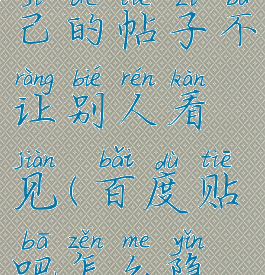 jǐ de tiě zi bù
己的帖子不
ràng bié rén kàn
让别人看
jiàn bǎi dù tiē
见(百度贴
bā zěn me yǐn
吧怎么隐